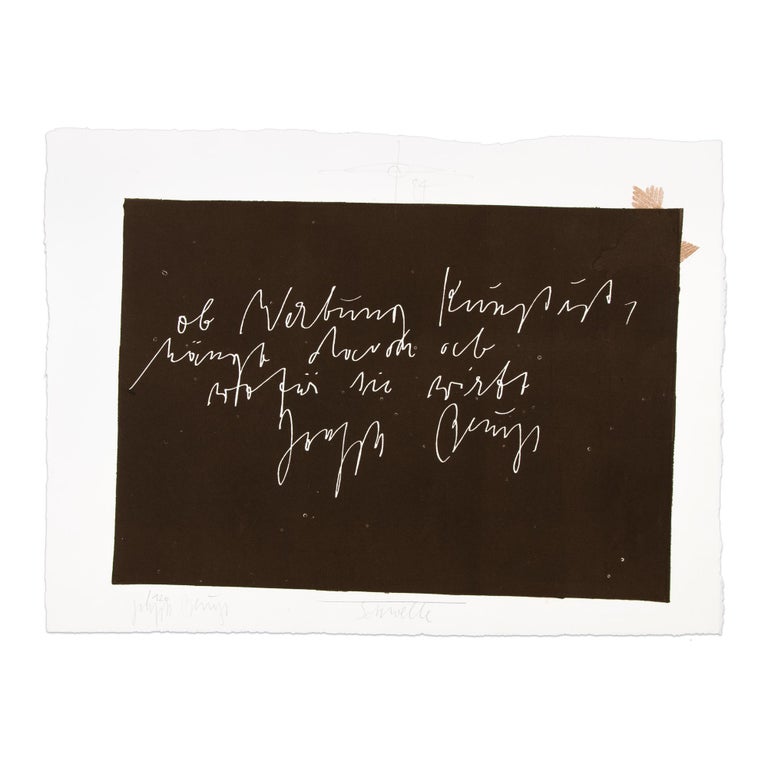 ob Werbung Kunst ist,
hängt davon ab
wofür sie wirbt
Joseph Beuys
Joseph Beuys
Schwelle